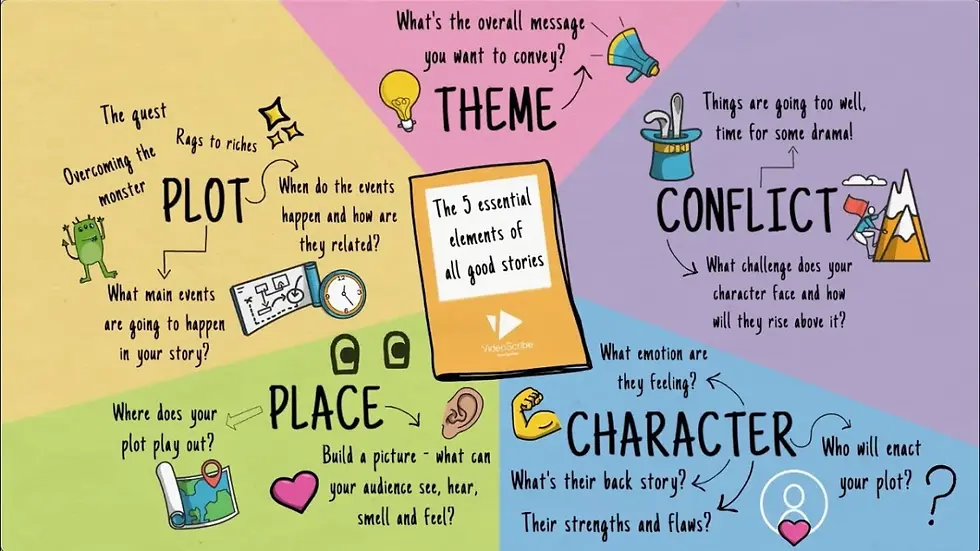 What's the overall message
you want to convey?
THEME
The quest
Rags to riches
Overcoming the
monster
PLOT
When do the events
happen and how are
they related?
What main events
are going to happen
in your story?
The 5 essential
elements of
all good stories
VideoScribe
Things are going too well,
time for some drama!
CONFLICT
What challenge does your
character face and how
will they rise above it?
PLACE
Where does your
plot play out?
Build a picture - what can
your audience see, hear,
smell and feel?
What emotion are
they feeling?
CHARACTER
Who will enact
your plot?
What's their back story?
Their strengths and flaws?
?